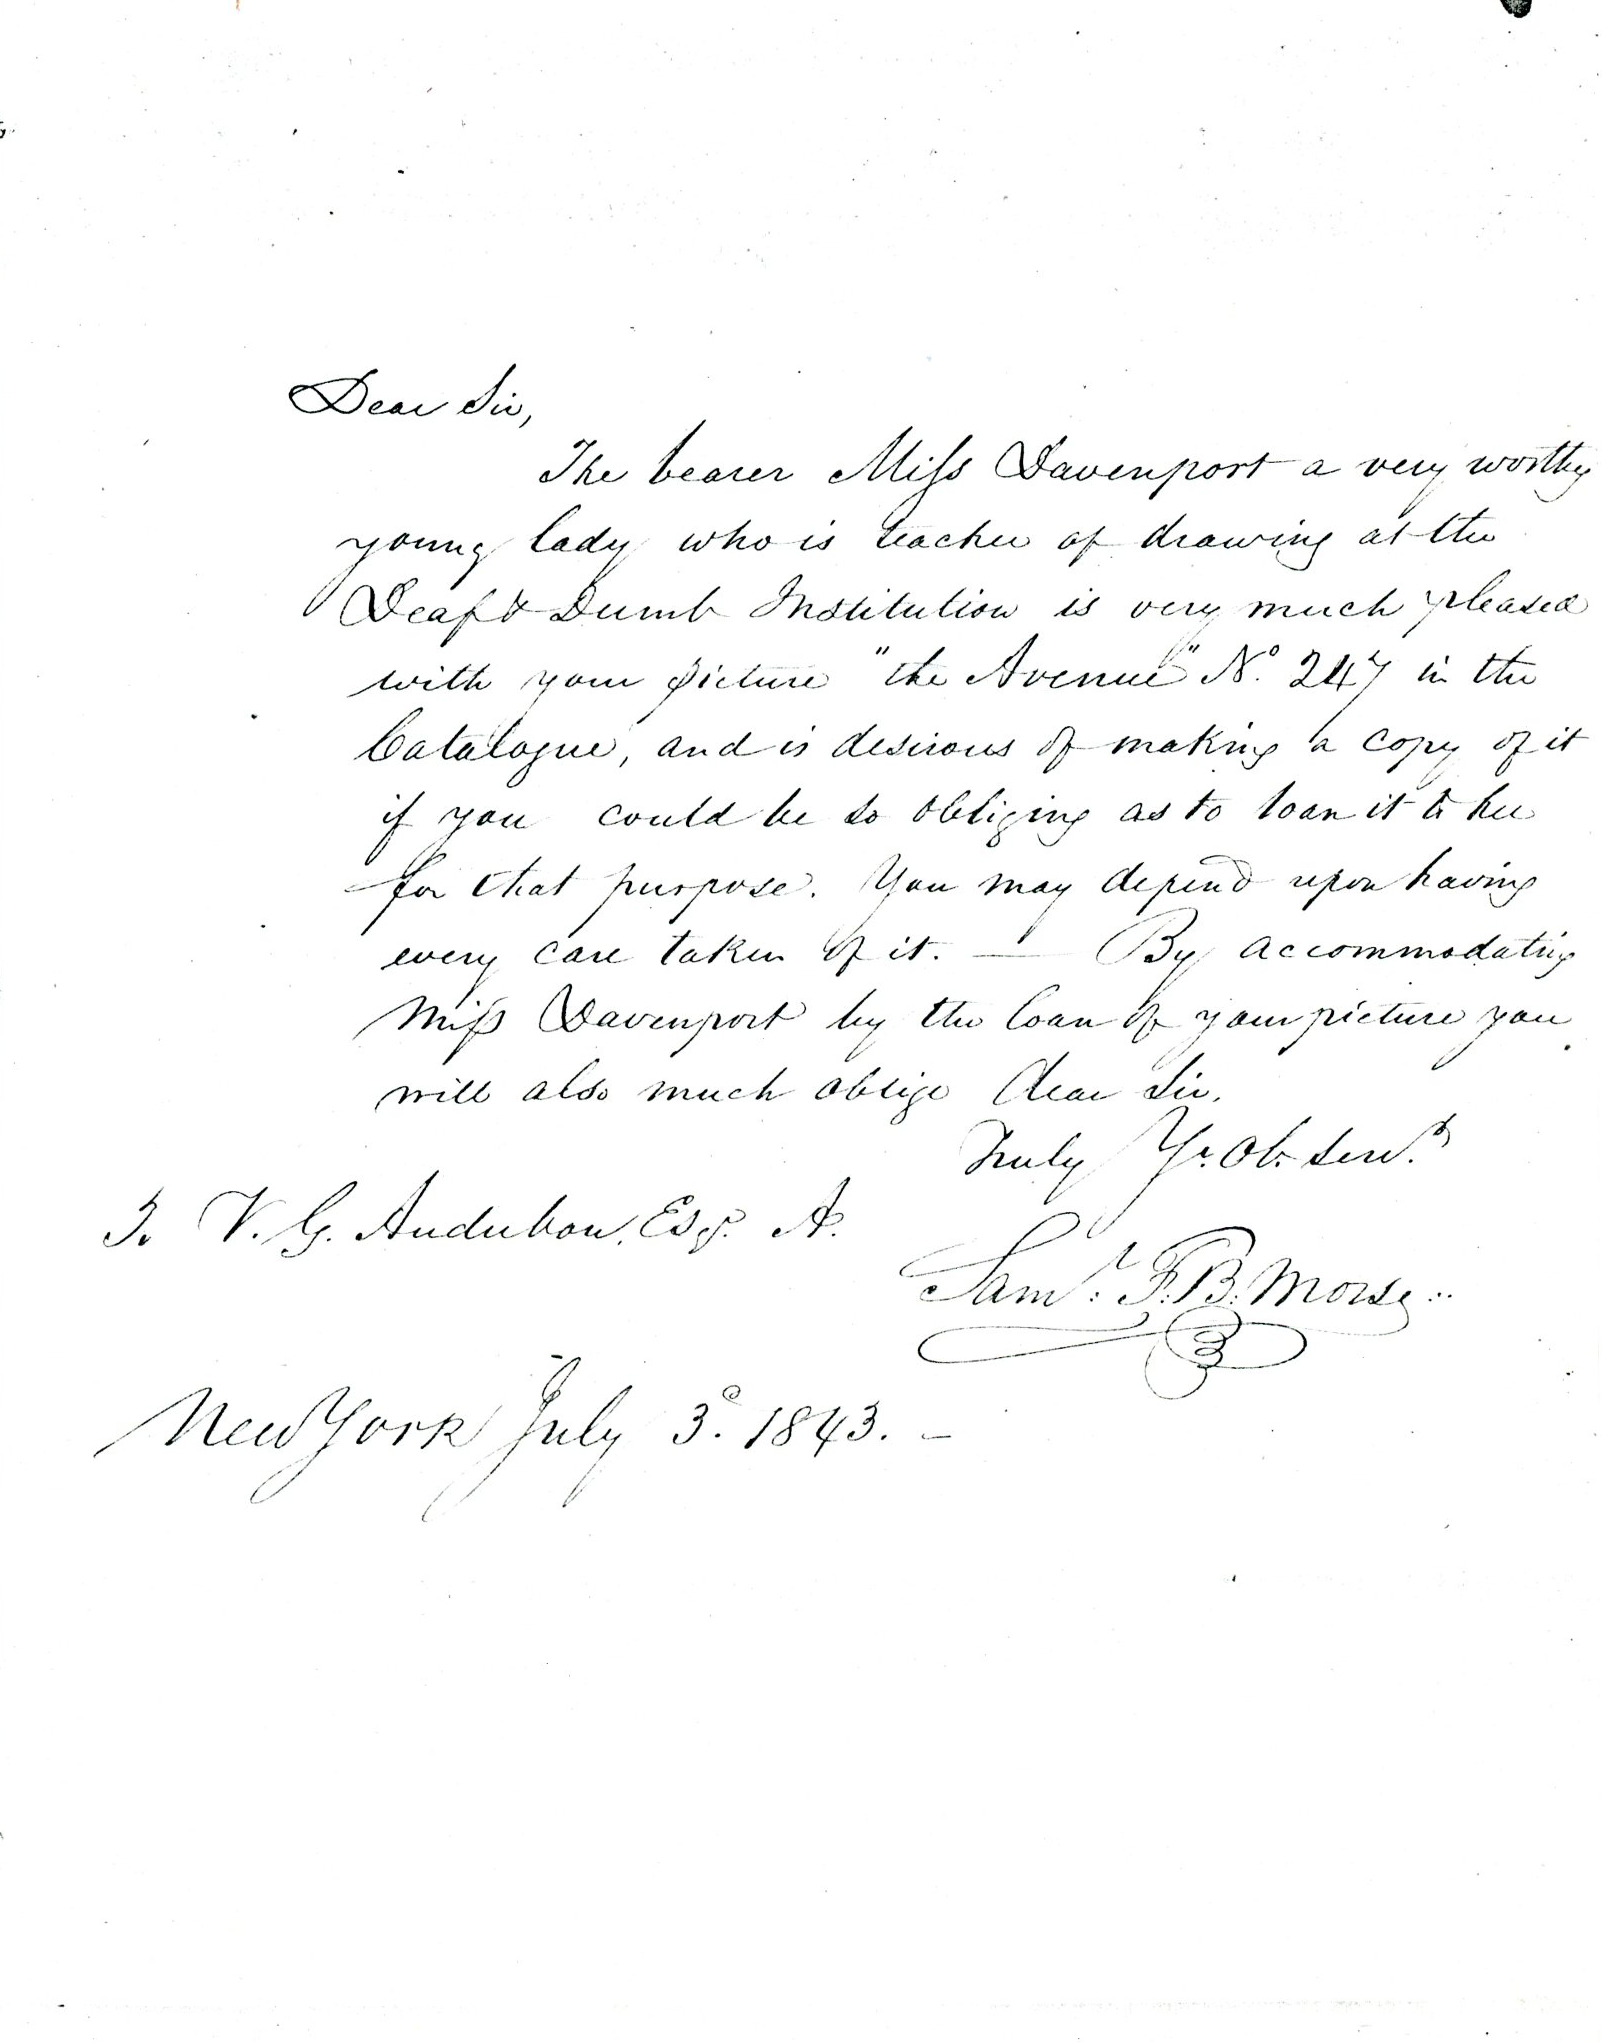 Dear Sir,
The bearer Miss Davenport a very worthy
young lady who is teacher of drawing at the
Deaf & Dumb Institution is very much pleased
with your picture "the Avenue" No. 247 in the
Catalogue, and is desirous of making a copy of it
if you could be so obliging as to loan it to her
for that purpose. You may depend upon having
every care taken of it. — By accommodating
Miss Davenport by the loan of your picture you
will also much oblige Dear Sir.
Truly Yr. Ob. Servt.
To V. G. Audubon, Esq. A.
Saml. F. B. Morse..
New York July 3d. 1843. —